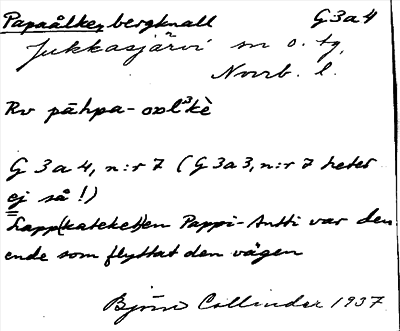 Papaålke, bergknall G3a4
Jukkasjärvi sn o. tg,
Norrb. l.
Rv pāhpa-oɒl³kè
G 3 a 4, n:r 7 (G 3 a 3, n:r 7 heter
ej så!)
lapp(kateket)en Pappi-Antti var den
ende som flyttat den vägen
Björn Collinder 1937